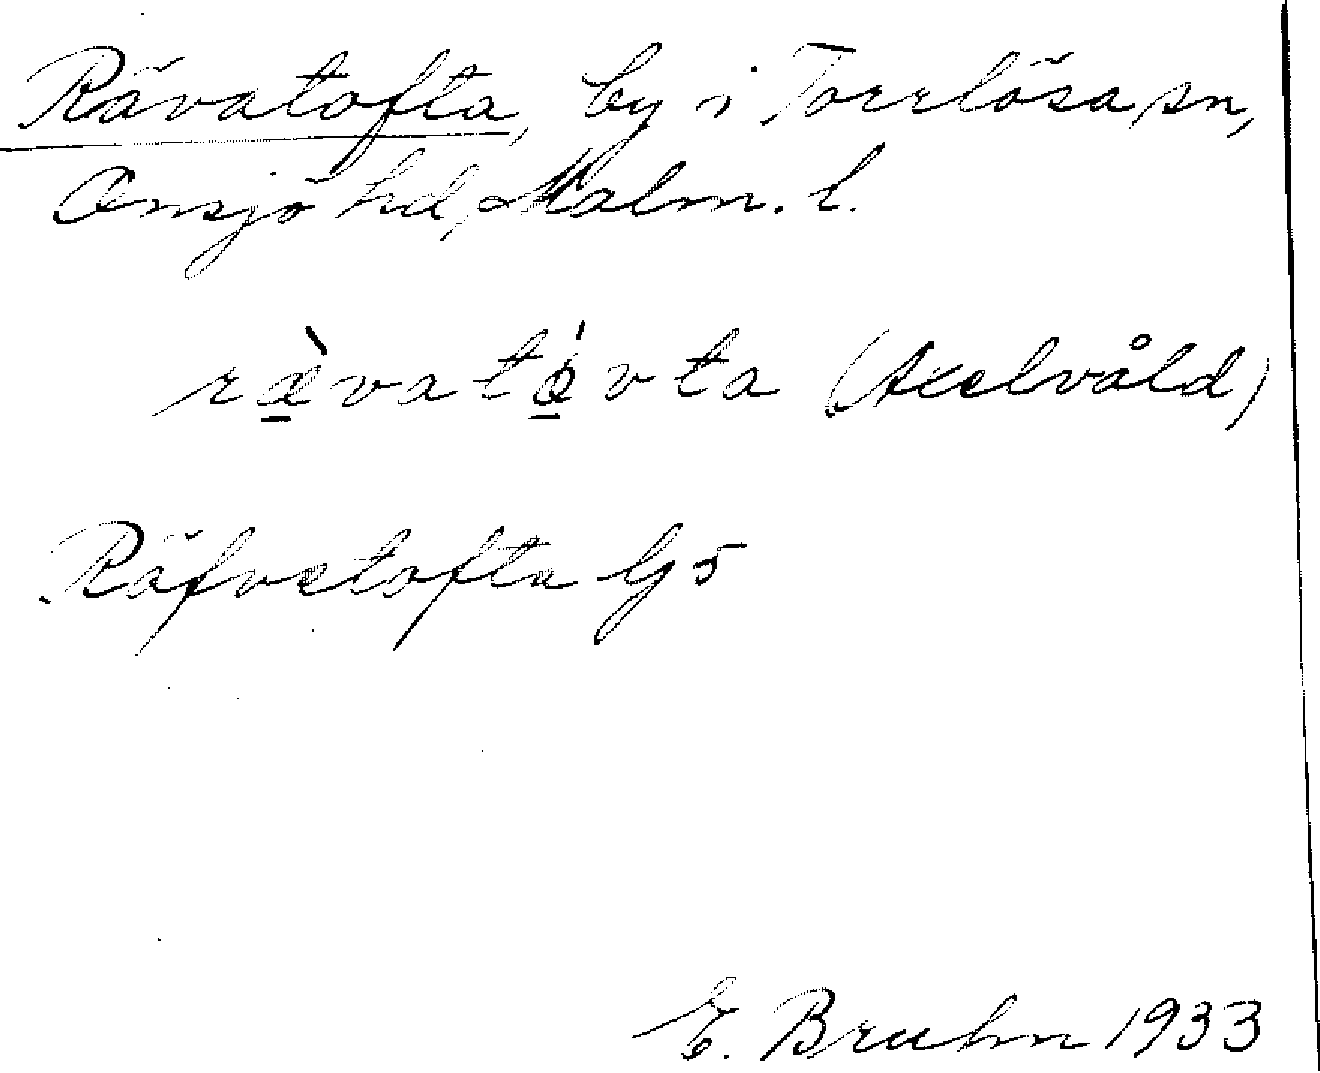 Rävatofta, by i Torrlösa sn,
Onsjö hd, Malm. l.
ræ̀vatǿvta (Axelvåld)
Räfvetofta Gs
E. Bruhn 1933